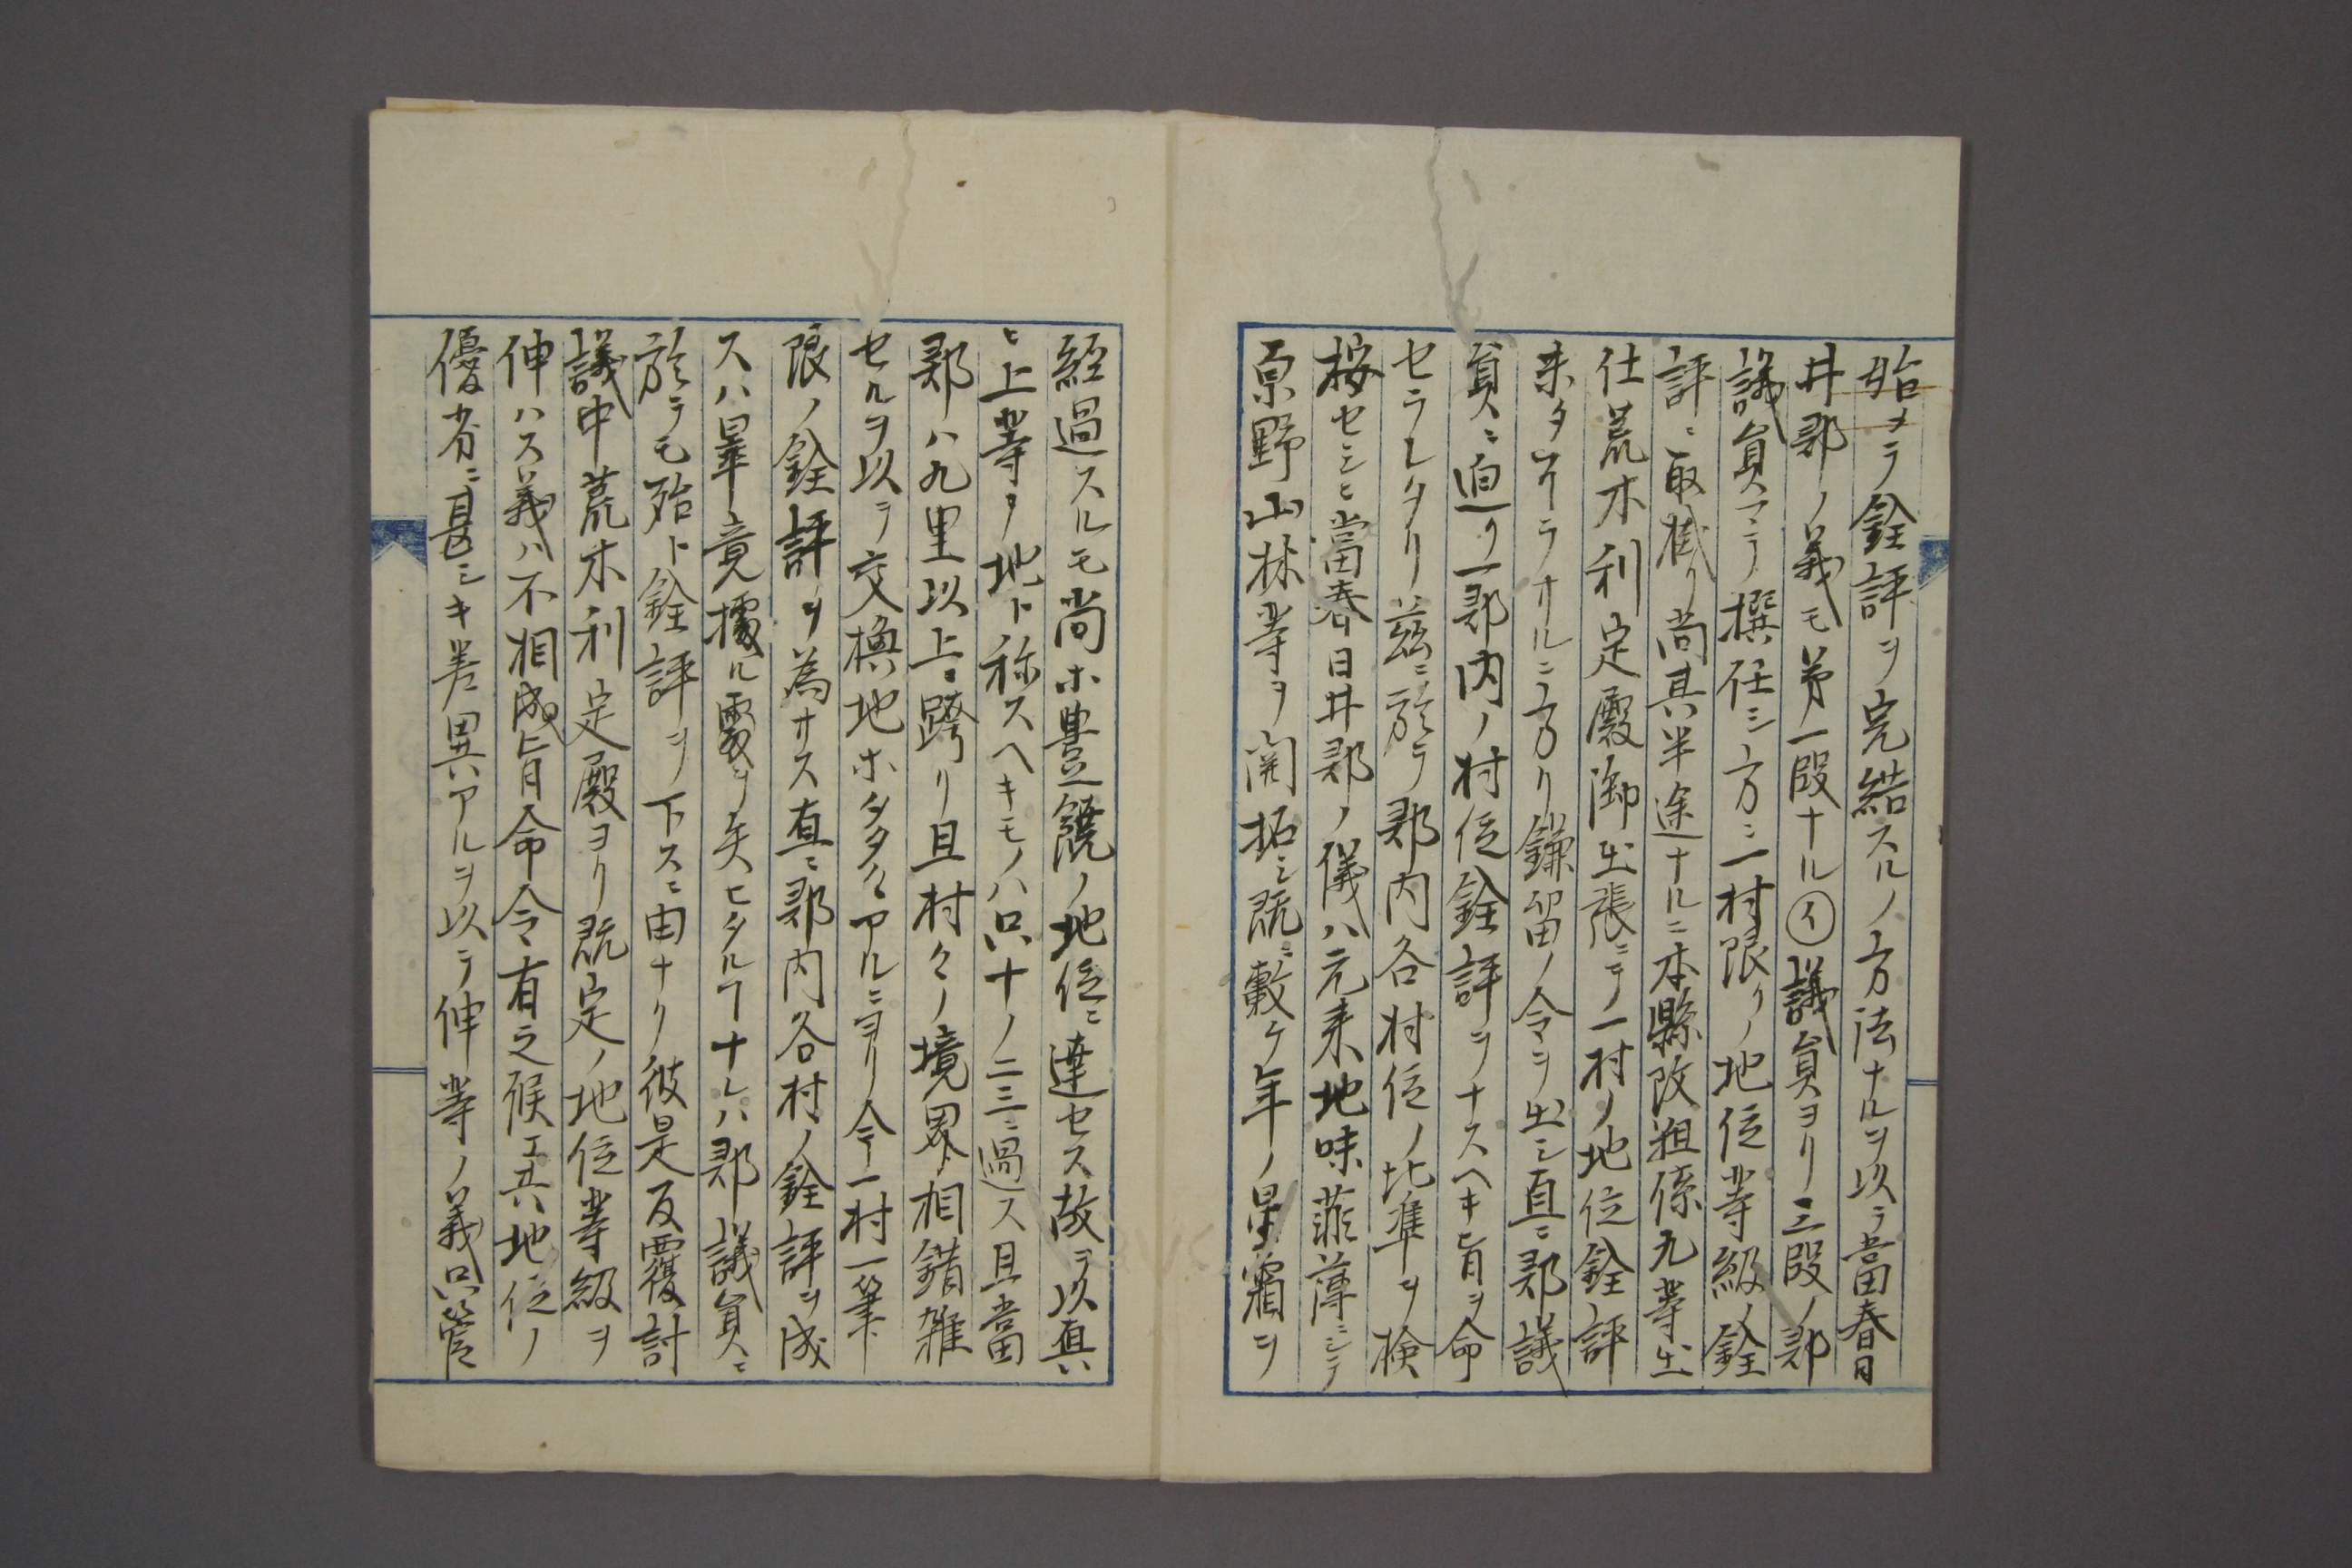 始メテ銓評ヲ完結スルノ方法ナルヲ以テ當春日
井郡ノ義モ第一段ナル㋑議員ヨリ三段ノ郡
議員マテ撰任シ方ニ一村限リノ地位等級ノ銓
評ニ取掛リ尚其半途ナルニ本縣改租係九等出
仕荒木利定殿御出張ニテ一村ノ地位銓評
未タ了ラサルニ方リ鎌留ノ令ヲ出シ直ニ郡議
員ニ迫リ一郡内ノ村位銓評ヲナスヘキ旨ヲ命
セラレタリ茲ニ於テ郡内各村位ノ比準ヲ検
按セシニ當春日井郡ノ儀ハ元来地味菲薄ニシテ
原野山林等ヲ開拓シ既ニ数ケ年ノ星霜ヲ
経過スルモ尚ホ豊饒ノ地位ニ達セス故ヲ以真
ニ上等ノ地ト称スヘキモノハ只十ノ二三ニ過ス且當
郡ハ九里以上ニ跨リ且村々ノ境界ト相錯雑
セルヲ以テ交換地ホタタクアルニヨリ今一村一筆
限ノ銓評ヲ為サス直ニ郡内各村ノ銓評ヲ成
スハ畢竟據ル處ヲ失ヒタルヿナレハ郡議員ニ
於テモ殆ト銓評ヲ下スニ由ナク彼是反覆討
議中荒木利定殿ヨリ既定ノ地位等級ヲ
伸ハス義ハ不相成旨命令有之候エ共地位ノ
優劣ニ甚シキ差異アルヲ以テ伸等ノ義只管